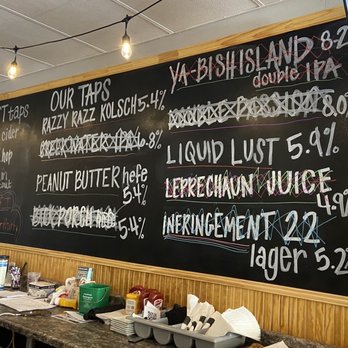 T taps
cider
hop
OUR TAPS
RAZZY RAZZ KOLSCH 5.4%
CREEKWATER IPA 6.8%
PEANUT BUTTER hefe
5.4%
5.4%
YA-BISH ISLAND 8.2
double IPA
DOUBLE PASSION 8.0
LIQUID LUST 5.9%
LEPRECHAUN JUICE
4.9%
INFRINGEMENT 22
lager 5.2